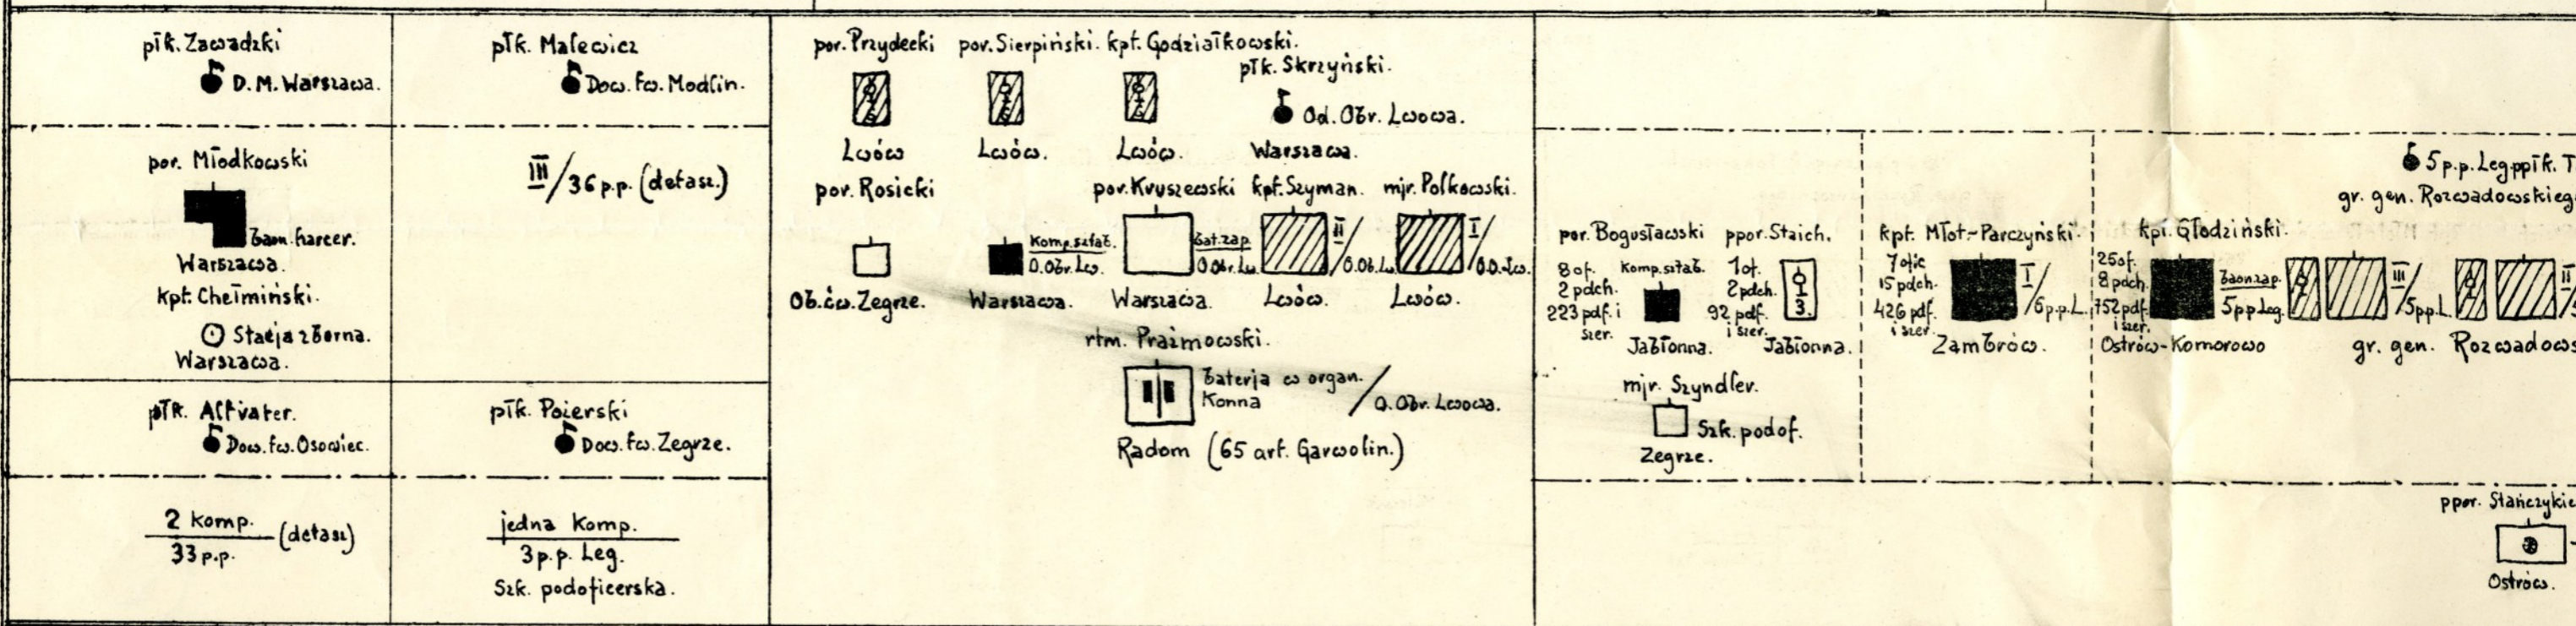 płk. Zawadzki
D.M. Warszawa.
por. Młodkowski
baon. harcer.
Warszawa.
kpt. Chełmiński.
Stacja zborna.
Warszawa.
płk. Altvater.
Dow. fw. Osowiec.
2 komp.
33 p.p. (detasz)
płk. Malewicz
Dow. fw. Modlin.
III/36 p.p. (detasz.)
płk. Pożerski
Dow. fw. Zegrze.
jedna Komp.
3 p.p. Leg.
Szk. podoficerska.
por. Przydecki por. Sierpiński. kpt. Godziałkowski.
płk. Skrzyński.
Od. Obr. Lwowa.
Lwów Lwów. Lwów. Warszawa.
por. Rosicki por. Kruszewski kpt. Szyman. mjr. Polkowski.
Komp. sztab. bat. zap. II/ I/
O.Obr. Lw. O.Obr. Lw. O.Ob. Lw. O.O. Lw.
Ob. ćw. Zegrze. Warszawa. Warszawa. Lwów. Lwów.
rtm. Prażmowski.
baterja w organ.
Konna / O.Obr. Lwowa.
Radom (65 art. Garwolin.)
por. Bogusławski ppor. Staich.
8 of. Komp. sztab. 1 of.
2 pdch. 2 pdch.
223 pdf. i 92 pdf. 3.
szer. i szer.
Jabłonna. Jabłonna.
mjr. Szyndler.
Szk. podof.
Zegrze.
kpt. Młot-Parczyński.
7 ofic
15 pdch. I/
426 pdf. 6 p.p. L.
i szer.
Zambrów.
5 p.p. Leg. ppłk. T
gr. gen. Rozwadowskieg
kpt. Głodziński.
25 of.
8 pdch. baon zap. III/ II/
752 pdf. 5 pp Leg. 5 pp L. 5
i szer.
Ostrów-Komorowo gr. gen. Rozwadows
ppor. Stańczykie
Ostrów.